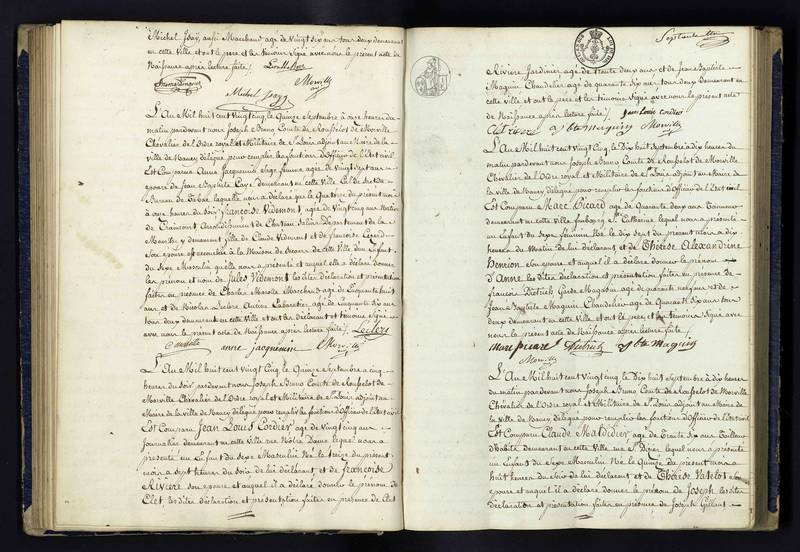 Michel Isay, aussi Marchand agé de Vingt six ans tous deux demeurant
en cette Ville et ont le pere et les témoins Signé avec nous le présent acte de
Naissance après lecture faite /.
Michel Isay
Morville
L'An Mil huit cent Vingt Cinq le Quinze Septembre à onze heures du
matin pardevant nous Joseph Bruno Comte de Rousselot de Morville
Chevalier de l'Ordre royal et Militaire de St Louis adjoint au Maire de la
ville de Nancy délégué pour remplir les fonctions d'Officier de l'Etat civil
Est Comparue Anne Jacquemin Sage femme agée de Vingt sept ans
épouse de Jean Baptiste demeurant en cette Ville
laquelle nous a déclaré que le Quatorze du présent mois
à onze heures du Soir Françoise Videmont agée de Vingt cinq ans Native
de Arrondissement de Château Salins Département de la
Meurthe y demeurant fille de Claude Videmont et de Françoise
Son épouse est accouchée à la Maison de Secours de cette Ville d'un Enfant
du Sexe Masculin qu'elle nous a présenté et auquel elle a déclaré donner
les prénom et nom de Jules Videmont les dites déclaration et présentation
faites en présence de Charles Marchand agé de Cinquante huit
ans et de Nicolas Leclere Ancien Cabaretier agé de Cinquante six ans
tous deux demeurant en cette Ville et ont les déclarant et témoins Signé
avec nous le présent acte de Naissance après lecture faite /. Leclers
anne jacquemin Morville
L'An Mil huit cent Vingt Cinq le Quinze Septembre à cinq
heures du Soir pardevant nous Joseph Bruno Comte de Rousselot de
Morville Chevalier de l'Ordre royal et Militaire de St Louis adjoint au
Maire de la ville de Nancy délégué pour remplir les fonctions d'Officier de l'Etat civil
Est Comparu Jean Louis Cordier agé de Vingt cinq ans
Journalier demeurant en cette Ville rue Notre Dame lequel nous a
présenté un Enfant du Sexe Masculin Né le treize du présent
mois à sept heures du Soir de lui déclarant et de Françoise
Riviere son épouse et auquel il a déclaré donner le prénom de
Clet les dites déclaration et présentation faites en présence de Clet
Septante
Riviere Jardinier agé de trente deux ans et de Jean Baptiste
Maguin Chandelier agé de quarante six ans tous deux demeurant en
cette ville et ont le pere et les témoins Signé avec nous le présent acte
de Naissance après lecture faite /. jean Louis cordier
Clet riviere j bte maguin Morville
L'An Mil huit cent Vingt Cinq le Dix huit Septembre à dix heures du
matin pardevant nous Joseph Bruno Comte de Rousselot de Morville
Chevalier de l'Ordre royal et Militaire de St Louis adjoint au Maire de
la ville de Nancy délégué pour remplir les fonctions d'Officier de l'Etat civil
Est Comparu Marc Picard agé de Quarante deux ans
demeurant en cette Ville faubourg Ste Catherine lequel nous a présenté
un Enfant du Sexe féminin Né le dix sept du présent mois à dix
heures du Matin de lui déclarant et de Thérèse Alexandrine
Henrion Son épouse et auquel il a déclaré donner le prénom
d'Anne les dites déclaration et présentation faites en présence de
François Dietrich Garde Magasin agé de quarante neuf ans et de
Jean Baptiste Maguin Chandelier agé de Quarante Six ans tous
deux demeurant en cette Ville et ont le pere et les témoins Signé avec
nous le présent acte de Naissance après lecture faite /.
Marc picard Dietrich j bte maguin
Morville
L'An Mil huit cent Vingt Cinq le Dix huit Septembre à dix heures
du matin pardevant nous Joseph Bruno Comte de Rousselot de Morville
Chevalier de l'Ordre royal et Militaire de St Louis adjoint au Maire de
la ville de Nancy délégué pour remplir les fonctions d'Officier de l'Etat civil
Est Comparu Claude Maldidier agé de Trente Six ans Tailleur
d'habits demeurant en cette Ville rue St Dizier lequel nous a présenté
un Enfant du Sexe Masculin Né le Quinze du présent mois à
huit heures du Soir de lui déclarant et de Thérèse Vatelot son
épouse et auquel il a déclaré donner le prénom de Joseph les dites
déclaration et présentation faites en présence de Joseph Gillant